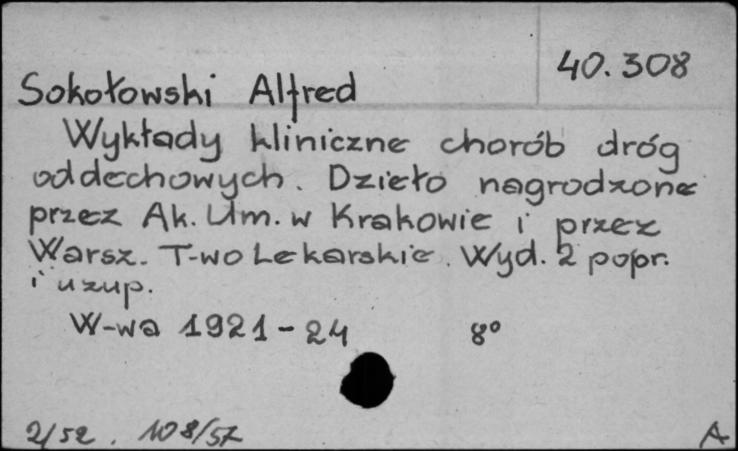 40.308
Sokołowski Alfred
Wykłady kliniczne chorób dróg
oddechowych. Dzieło nagrodzone
przez Ak. Um. w Krakowie i przez
Warsz. T-wo Lekarskie. Wyd. 2 popr.
i uzup.
W-wa 1921-24 8°
2/52. 108/57 A